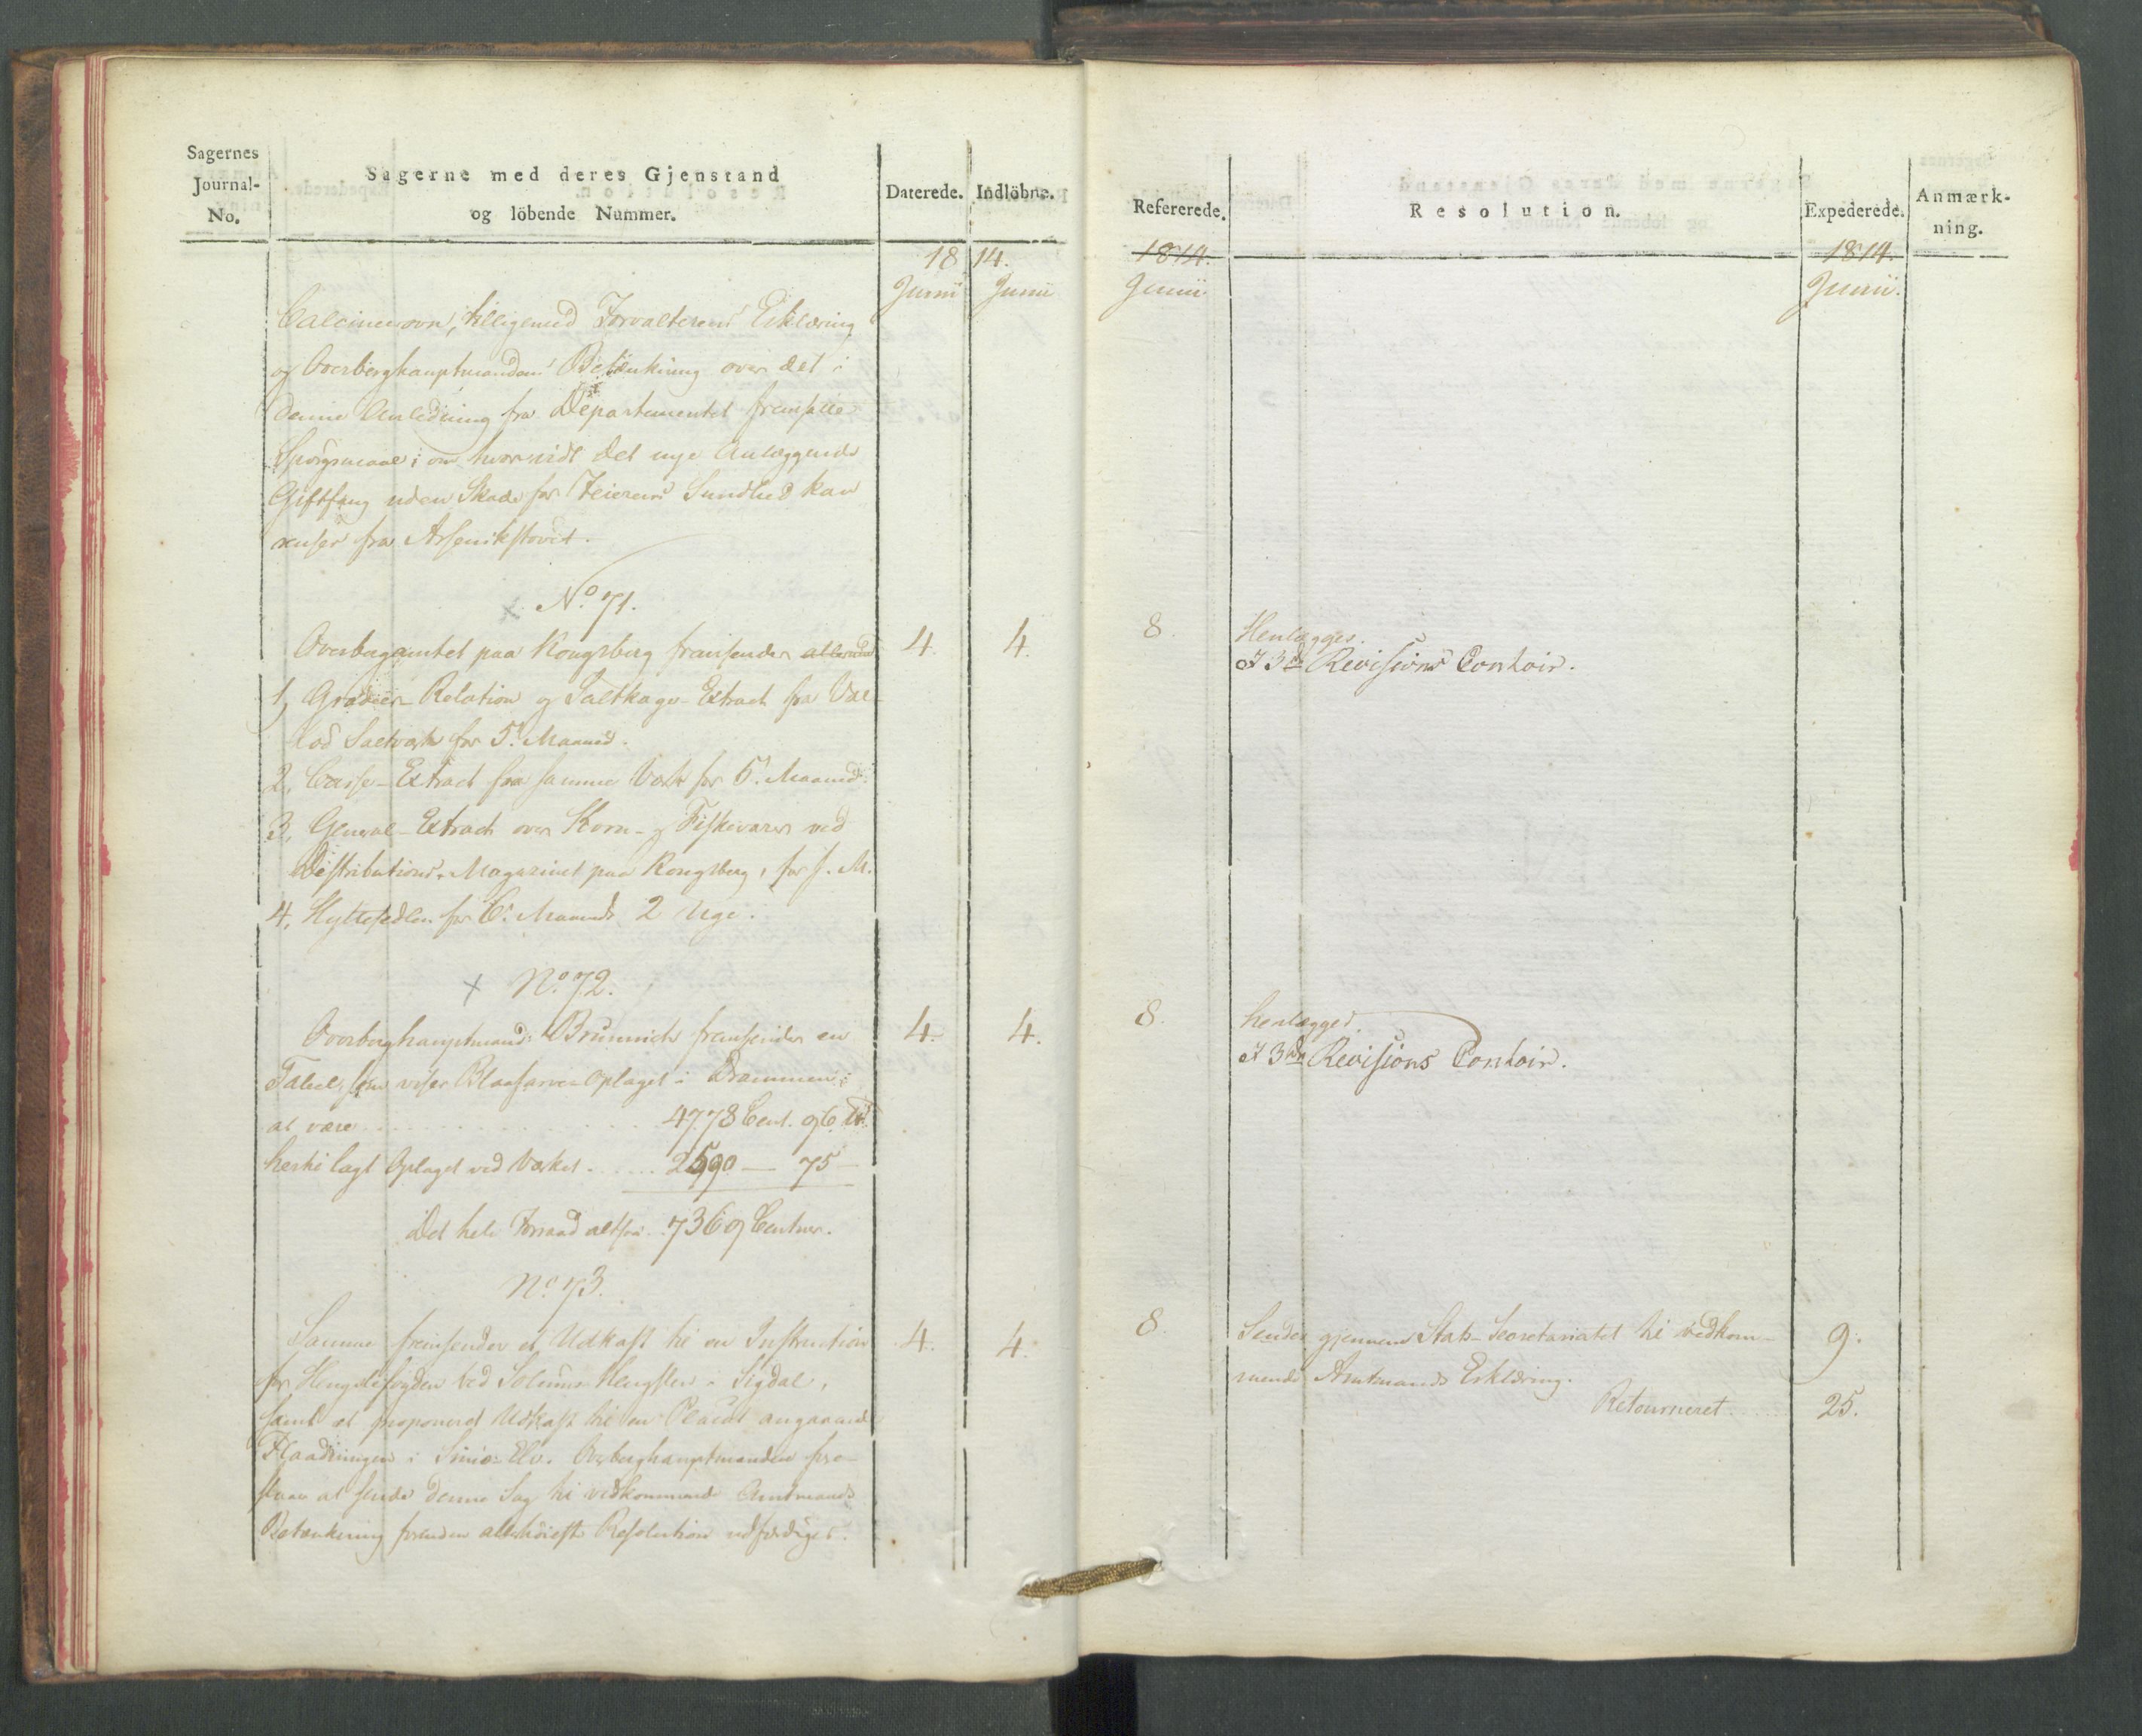 Sagernes
Journal-
No.
Sagerne med deres Gjenstand
og löbende Nummer.
Daterede.
Indlöbne.
1814.
Junii
Junii
Calcineerovn, tilligemed Forvalterens Erklæring
og Overberghauptmandens Betænkning over det i
denne Anledning fra Departementet fremsatte
Spörgsmaal; om hvorvidt det nye Anlæggende
Giftfang uden Skade for Feierens Sundhed kan
renses fra Arsenikstövet.
No. 71.
Overbergamtet paa Kongsberg fremsender 4. 4.
1, Gradeer-Relation og Saltkage-Extract fra Val-
löe Saltværk for 5te Maaned.
2, Casse-Extract fra samme Værk for 5te Maaned.
3, General-Extract over Korn- og Fiskevarer ved
Distributions-Magazinet paa Kongsberg, for s. M.
4, Hyttesedlen for 6te Maaneds 2 Uge.
× No. 72.
Overberghauptmand Brünnich fremsender en 4. 4.
Tabel, som viser Blaafarve-Oplaget i Drammen
at være 4778 Cent. 96 ℔.
hertil lagt Oplaget ved Værket 2590 — 75 —
Det hele Forraad altsaa 7369 Centner.
No. 73.
Samme fremsender et Udkast til en Instruction 4. 4.
for Hengslefogden ved Solums Hengsler i Sigdal,
samt et proponeret Udkast til en Placat angaaende
Flaadningen i Simoe Elv. Overberghauptmanden fore-
slaaer at sende denne Sag til vedkommende Amtmands
Betænkning forinden allerhöieste Resolution udfærdiges.
Refererede.
Resolution.
Expederede.
Anmærk-
ning.
1814.
1814.
Junii
Junii.
8. Henlægges.
3de Revisions Contoir.
8. henlægges
3de Revisions Contoir.
8. Sendes gjennem Stats-Secretariatet til vedkom- 9.
mende Amtmands Erklæring.
Retourneret 25.